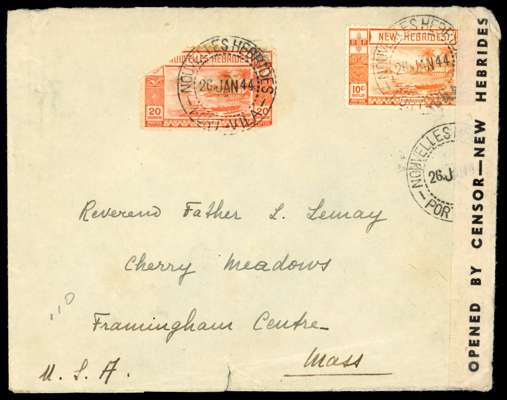 NOUVELLES HEBRIDES
20
NOUVELLES HEBRIDES
26 JAN 44
PORT-VILA
NEW HEBRIDES
10c
26 JAN 44
NOUVELLES
26 J
POR
OPENED BY CENSOR—NEW HEBRIDES
Reverend Father L. Lemay
Cherry Meadows
Framingham Centre
Mass
U. S. A.
110